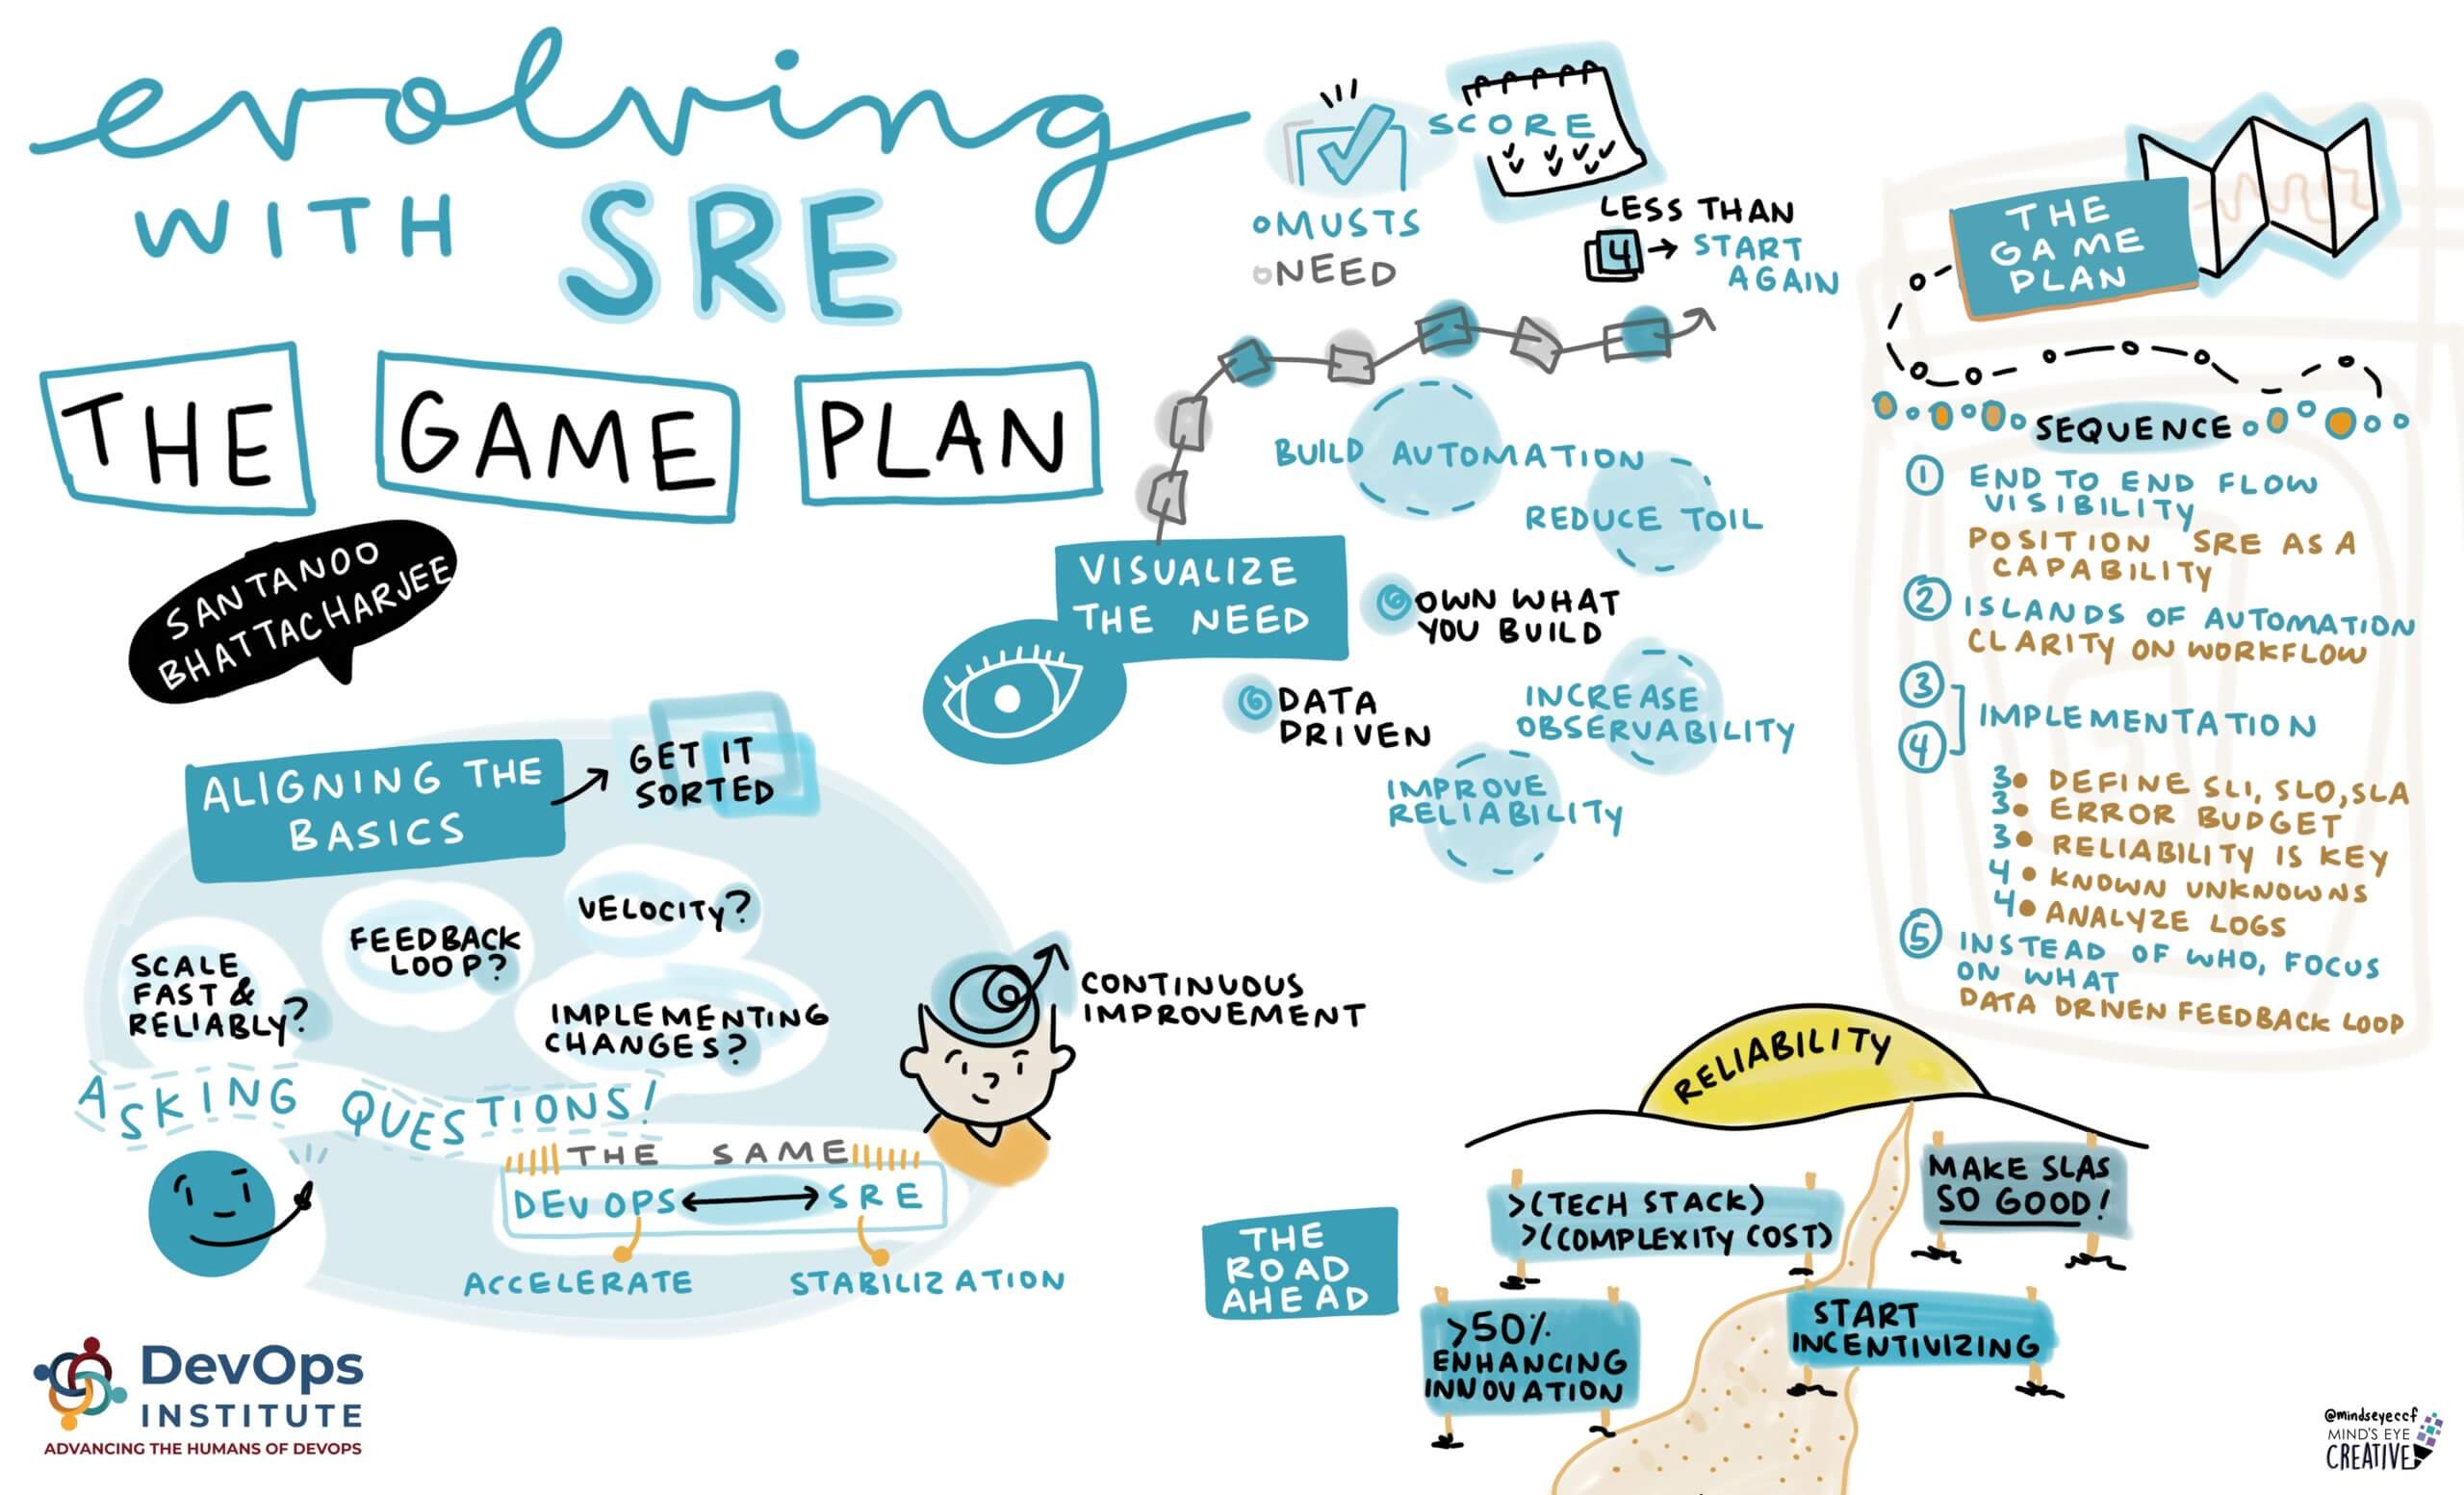 evolving
WITH SRE
THE GAME PLAN
SANTANOO
BHATTACHARJEE
ALIGNING THE
BASICS
GET IT
SORTED
VELOCITY?
FEEDBACK
LOOP?
SCALE
FAST &
RELIABLY?
IMPLEMENTING
CHANGES?
ASKING QUESTIONS!
CONTINUOUS
IMPROVEMENT
THE SAME
DEVOPS SRE
ACCELERATE STABILIZATION
DevOps
INSTITUTE
ADVANCING THE HUMANS OF DEVOPS
SCORE
MUSTS
NEED
LESS THAN
4 → START
AGAIN
VISUALIZE
THE NEED
BUILD AUTOMATION
REDUCE TOIL
OWN WHAT
YOU BUILD
DATA
DRIVEN
INCREASE
OBSERVABILITY
IMPROVE
RELIABILITY
THE
GAME
PLAN
SEQUENCE
1 END TO END FLOW
VISIBILITY
POSITION SRE AS A
CAPABILITY
2 ISLANDS OF AUTOMATION
CLARITY ON WORKFLOW
3
4
IMPLEMENTATION
3• DEFINE SLI, SLO, SLA
3• ERROR BUDGET
3• RELIABILITY IS KEY
4• KNOWN UNKNOWNS
4• ANALYZE LOGS
5 INSTEAD OF WHO, FOCUS
ON WHAT
DATA DRIVEN FEEDBACK LOOP
THE
ROAD
AHEAD
RELIABILITY
>(TECH STACK)
>(COMPLEXITY COST)
MAKE SLAS
SO GOOD!
>50%
ENHANCING
INNOVATION
START
INCENTIVIZING
@mindseyeccf
MIND'S EYE
CREATIVE